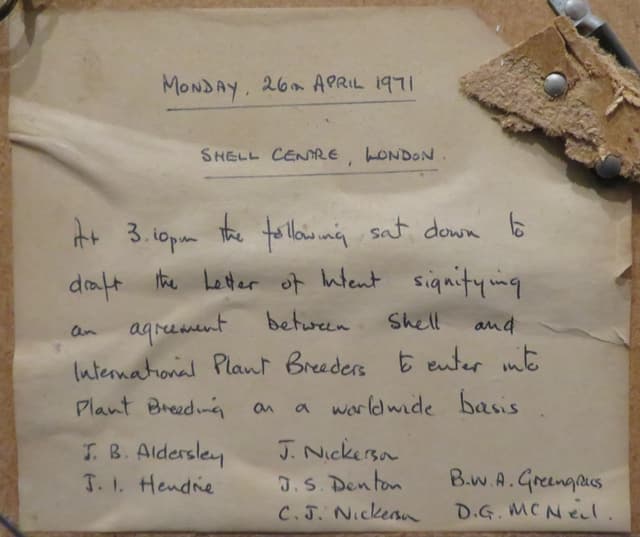 MONDAY, 26th APRIL 1971
SHELL CENTRE, LONDON.
At 3.10pm the following sat down to
draft the Letter of Intent signifying
an agreement between Shell and
International Plant Breeders to enter into
Plant Breeding on a worldwide basis.
J. B. Aldersley J. Nickerson
J. I. Hendrie J. S. Denton B.W.A. Greengrass
C. J. Nickerson D.G. MCNeil.